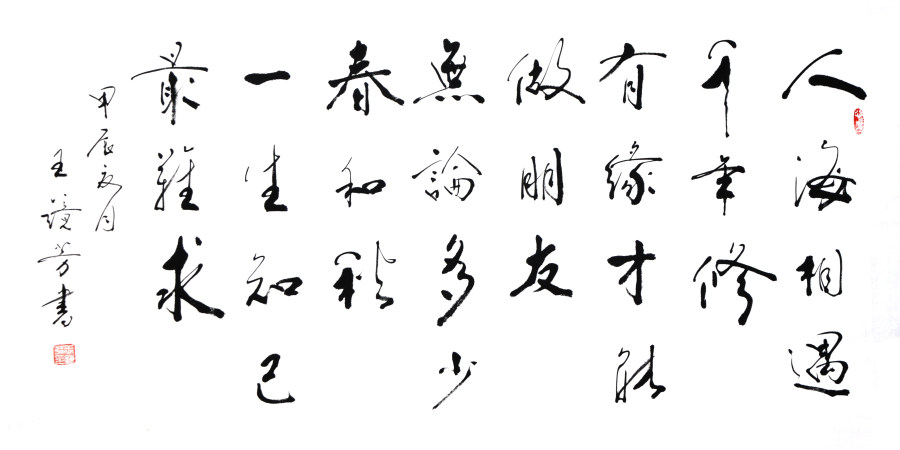 人海相遇
千年修
有緣才能
做朋友
無論多少
春和秋
一生知己
最難求
甲辰夏月
王鏡芳書